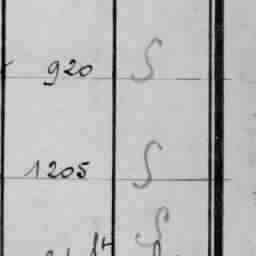 920 S
1205 S
S